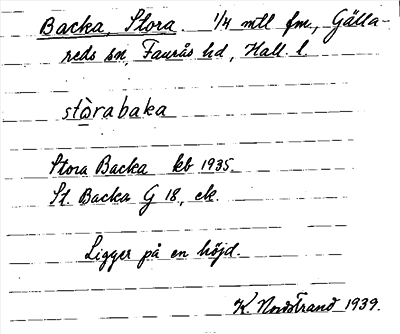 Backa, Stora. 1/4 mtl fm., Gälla-
reds sn, Faurås hd, Hall. l.
stòrabaka
Stora Backa kb 1935.
St. Backa G 18, ek.
Ligger på en höjd.
K. Nordstrand 1939.